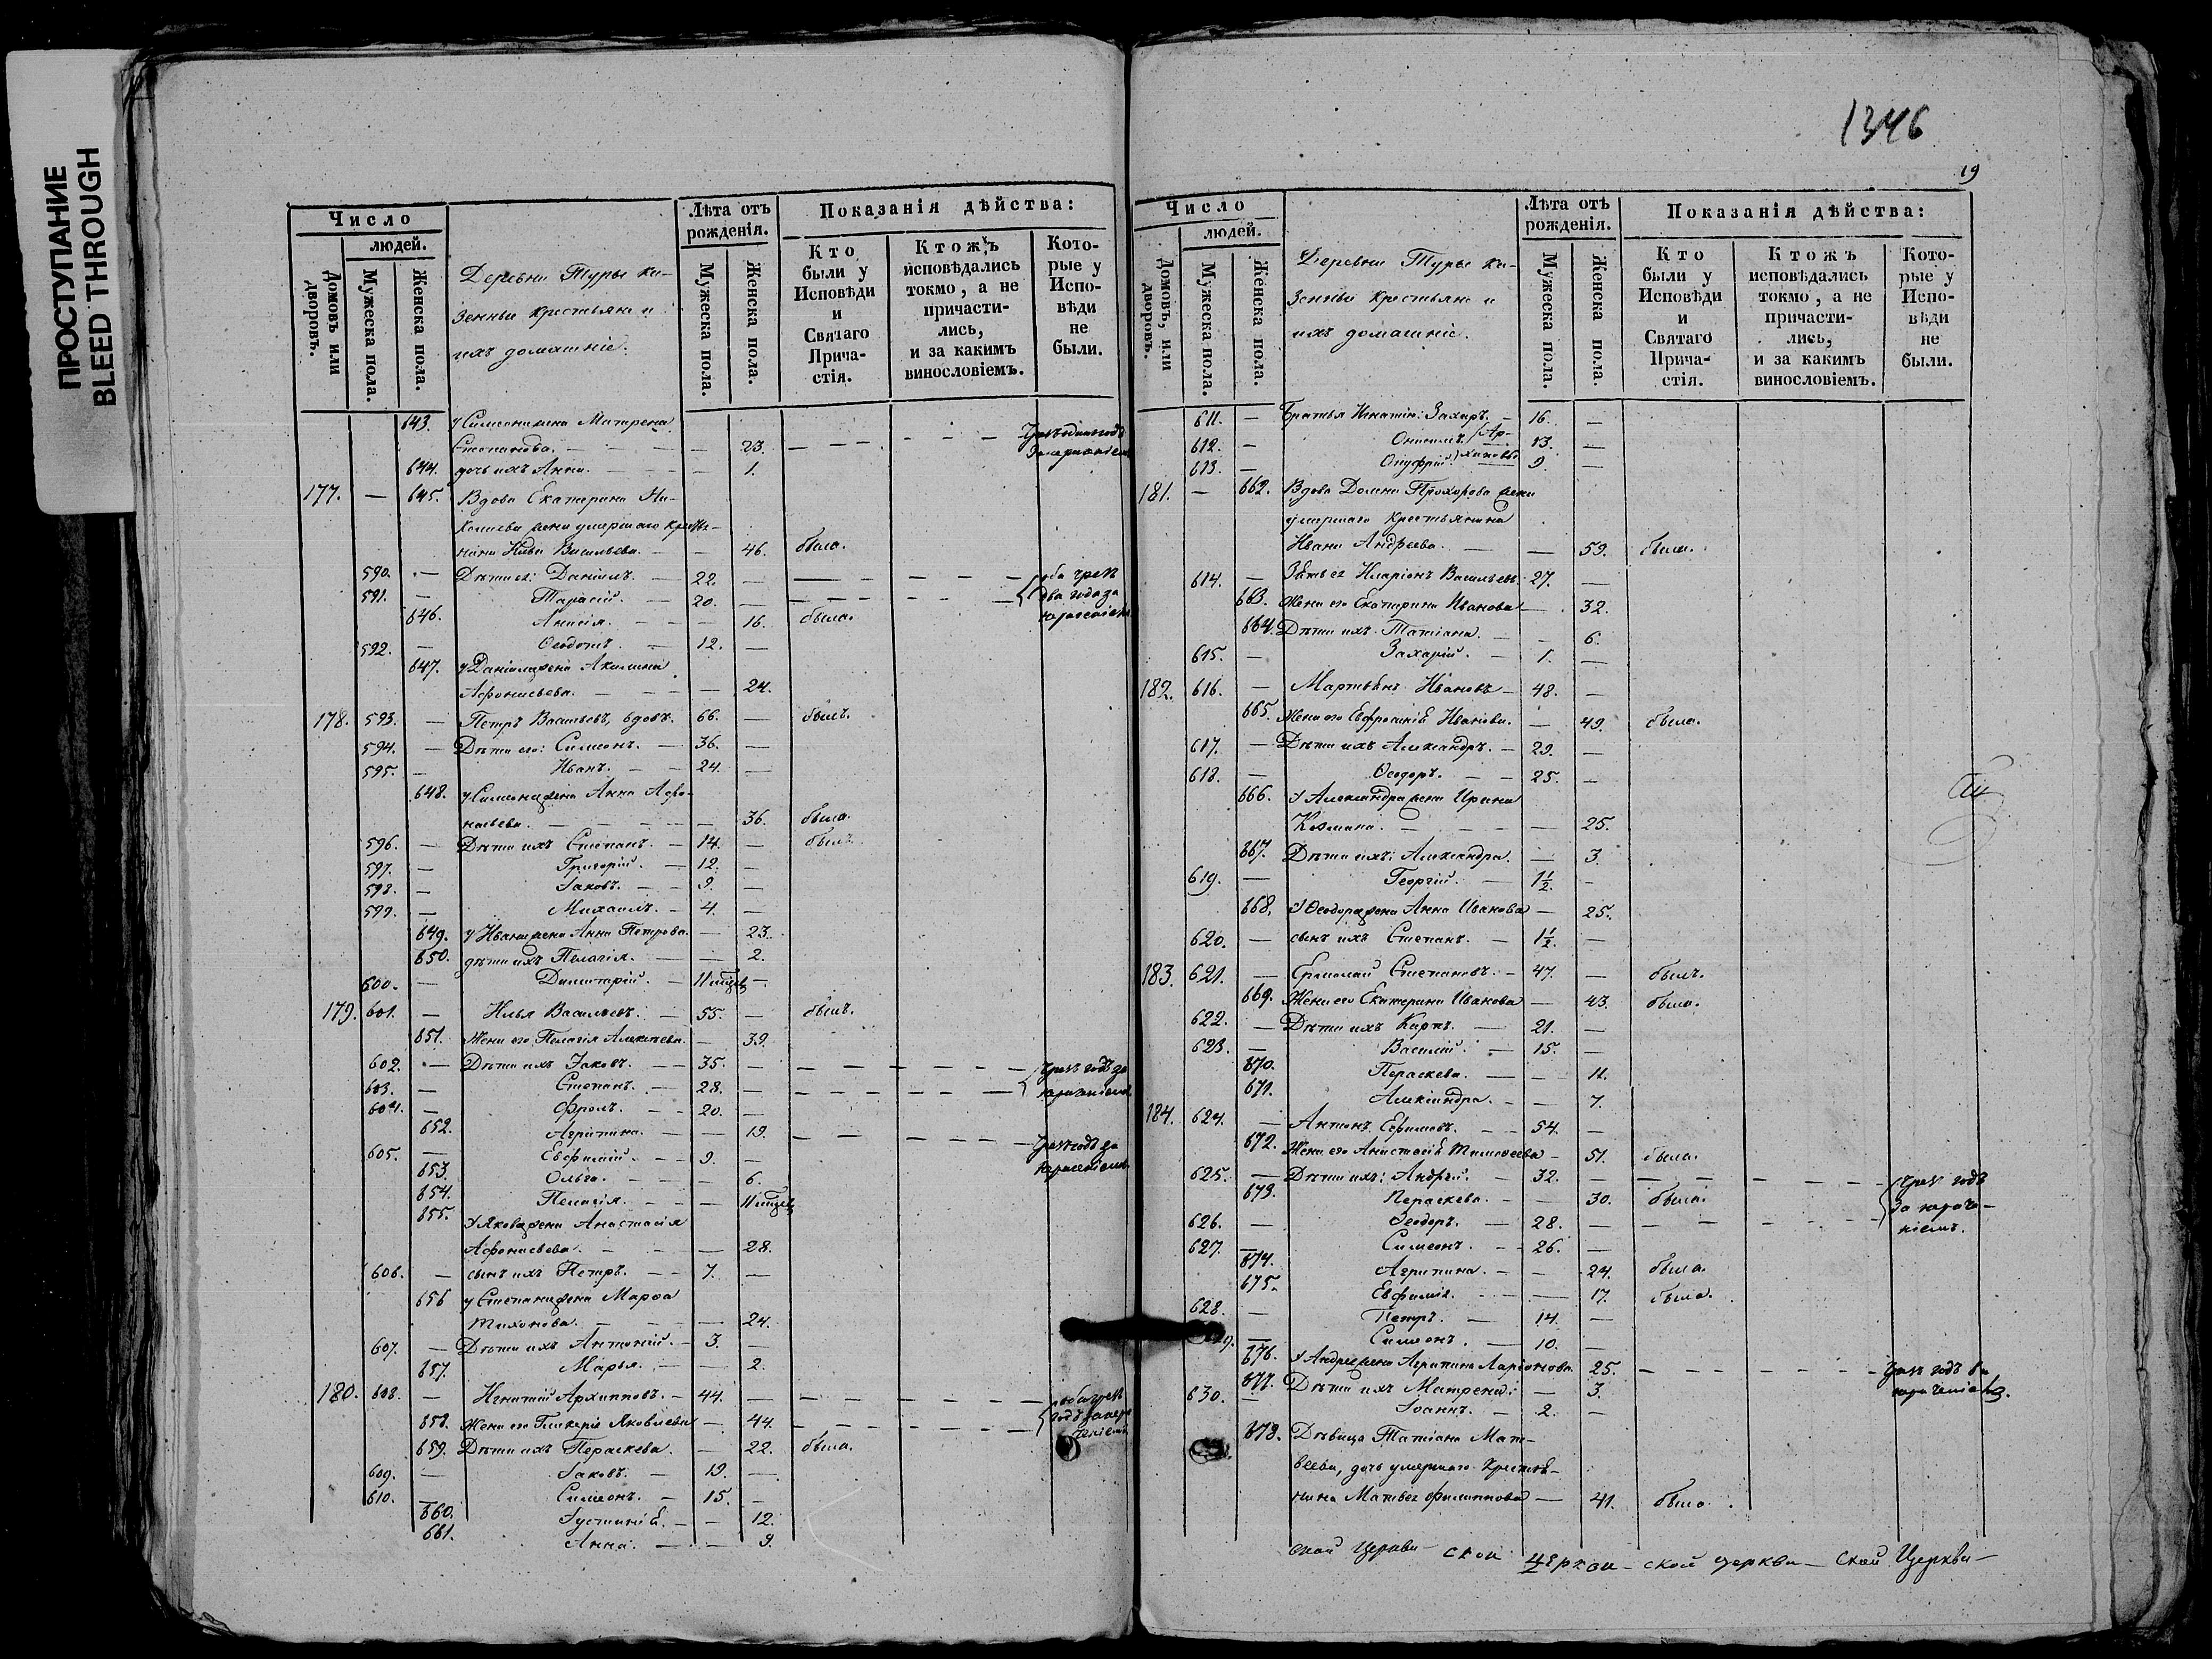 ПРОСТУПАНИЕ
BLEED THROUGH
Число
людей.
Домовъ или дворовъ.
Мужеска пола.
Женска пола.
Деревни Туры ка-
зенные крестьяне и
ихъ домашніе.
Лѣта отъ рожденія.
Мужеска пола.
Женска пола.
Показанія дѣйства:
Кто были у Исповѣди и Святаго Прича-стія.
Ктожъ исповѣдались токмо, а не причасти-лись, и за какимъ винословіемъ.
Кото-рые у Испо-вѣди не были.
643. у Симеона жена Матрена
Степанова. — — — — 23. — — — — — —
644. дочь ихъ Анна. — — — 1.
177. — 645. Вдова Екатерина
жена умершаго кресть-
нина Васильева. — — 46. была.
590. — Дѣти ея: Даніилъ. — 22. — — — — — — оба чрезъ
591. — Тарасій. — 20. — — — — — — два года за
646. Анисія. — — — 16. была.
592. — Ѳеодотъ. — 12. —
647. у Даніила жена Акилина
Афонасьева. — — — — 24.
178. 593. — Петръ Васильевъ, вдовъ. 66. — былъ.
594. — Дѣти его: Симеонъ. — 36. —
595. — Иванъ. — — 24. —
648. у Симеона жена Анна Афо-
насьева. — — — — — 36. была.
596. — Дѣти ихъ Степанъ. — 14. — былъ.
597. — Григорій. — 12. —
598. — Іаковъ. — — 9. —
599. — Михаилъ. — 4. —
649. у Ивана жена Анна Петрова. — 23.
650. дѣти ихъ Пелагія. — — 2.
600. — Димитрій. — 11 мѣсяц. —
179. 601. — Илья Васильевъ. — 55. — былъ.
651. Жена его Пелагія Алексѣева. — 39.
602. — Дѣти ихъ Іаковъ. — 35. — — — — — — чрезъ годъ за
603. — Степанъ. — 28. — — — — — —
604. — Фролъ. — — 20. —
652. Агрипина. — — 19. — — — — — — чрезъ годъ за
605. — Евфимій. — — 9. —
653. Ольга. — — — 6.
654. Пелагія. — — — 11 мѣсяц.
655. У Якова жена Анастасія
Афонасьева. — — — — 28.
606. — сынъ ихъ Петръ. — — 7. —
656 у Степана жена Марѳа
Тихонова. — — — — 24.
607. — Дѣти ихъ Антоній. — 3. —
657. Марья. — — 2.
180. 608. — Игнатій Архиповъ. — 44. — — — — — — оба чрезъ
658. Жена его Гликерія Яковлева — 44. — — — — — —
659. Дѣти ихъ Параскева. — 22. была.
609. — Іаковъ. — 19. —
610. — Симеонъ. — 15. —
660. Іустинія. — — 12.
661. Анна. — — 9.
1346
19
Число
людей.
Домовъ, или дворовъ.
Мужеска пола.
Женска пола.
Деревни Туры ка-
зенные крестьяне и
ихъ домашніе.
Лѣта отъ рожденія.
Мужеска пола.
Женска пола.
Показанія дѣйства:
Кто были у Исповѣди и Святаго Прича-стія.
Ктожъ исповѣдались токмо, а не причасти-лись, и за какимъ винословіемъ.
Кото-рые у Испо-вѣди не были.
611. — Братья Игнатія: Захаръ. — 16. —
612. — Онисимъ. (Ар- 13. —
613. — Онуфрій. хиповы 9. —
181. — 662. Вдова Домна Прохорова жена
умершаго крестьянина
Ивана Андреева. — — 59. была.
614. — Зять ея Иларіонъ Васильевъ. 27. —
663. Жена его Екатерина Иванова — 32.
664. Дѣти ихъ Татіана. — — 6.
615. — Захарій. — 1. —
182. 616. — Мартынъ Ивановъ — 48. —
665. Жена его Евфросинія Иванова. — 49. была.
617. — Дѣти ихъ Александръ. — 29. —
618. — Ѳеодоръ. — — 25. —
666. У Александра жена Ирина
Козмина. — — — — 25.
667. Дѣти ихъ: Александра. — 3.
619. — Георгій. — 1½. —
668. У Ѳеодора жена Анна Иванова — 25.
620. — сынъ ихъ Степанъ. — 1½. —
183. 621. — Ермолай Степановъ. — 47. — былъ.
669. Жена его Екатерина Иванова — 43. была.
622. — Дѣти ихъ Карпъ. — 21. —
623. — Василій. — 15. —
670. Параскева. — — 11.
671. Александра. — — 7.
184. 624. — Антонъ Ефимовъ. — — 54. —
672. Жена его Анастасія Тимоѳеева — 51. была.
625. — Дѣти ихъ: Андрей. — 32. — — — — — чрезъ годъ
673. Параскева. — — 30. была.
626. — Ѳеодоръ. — 28. — — — — —
627. — Симеонъ. — — 26. —
674. Агрипина. — — 24. была.
675. Евфимія. — — 17. была.
628. — Петръ. — 14. —
— Симеонъ. — 10. —
676. У Андрея жена Агрипина Ларіонова. 25. — — — — — чрезъ годъ
677. Дѣти ихъ Матрена. — 3.
630. — Іоаннъ. — 2. —
678. Дѣвица Татіана Мат-
вѣева, дочь умершаго крестья-
нина Матвея Филиппова — 41. была.
ской Церкви — ской Церкви — ской церкви — ской Церкви —